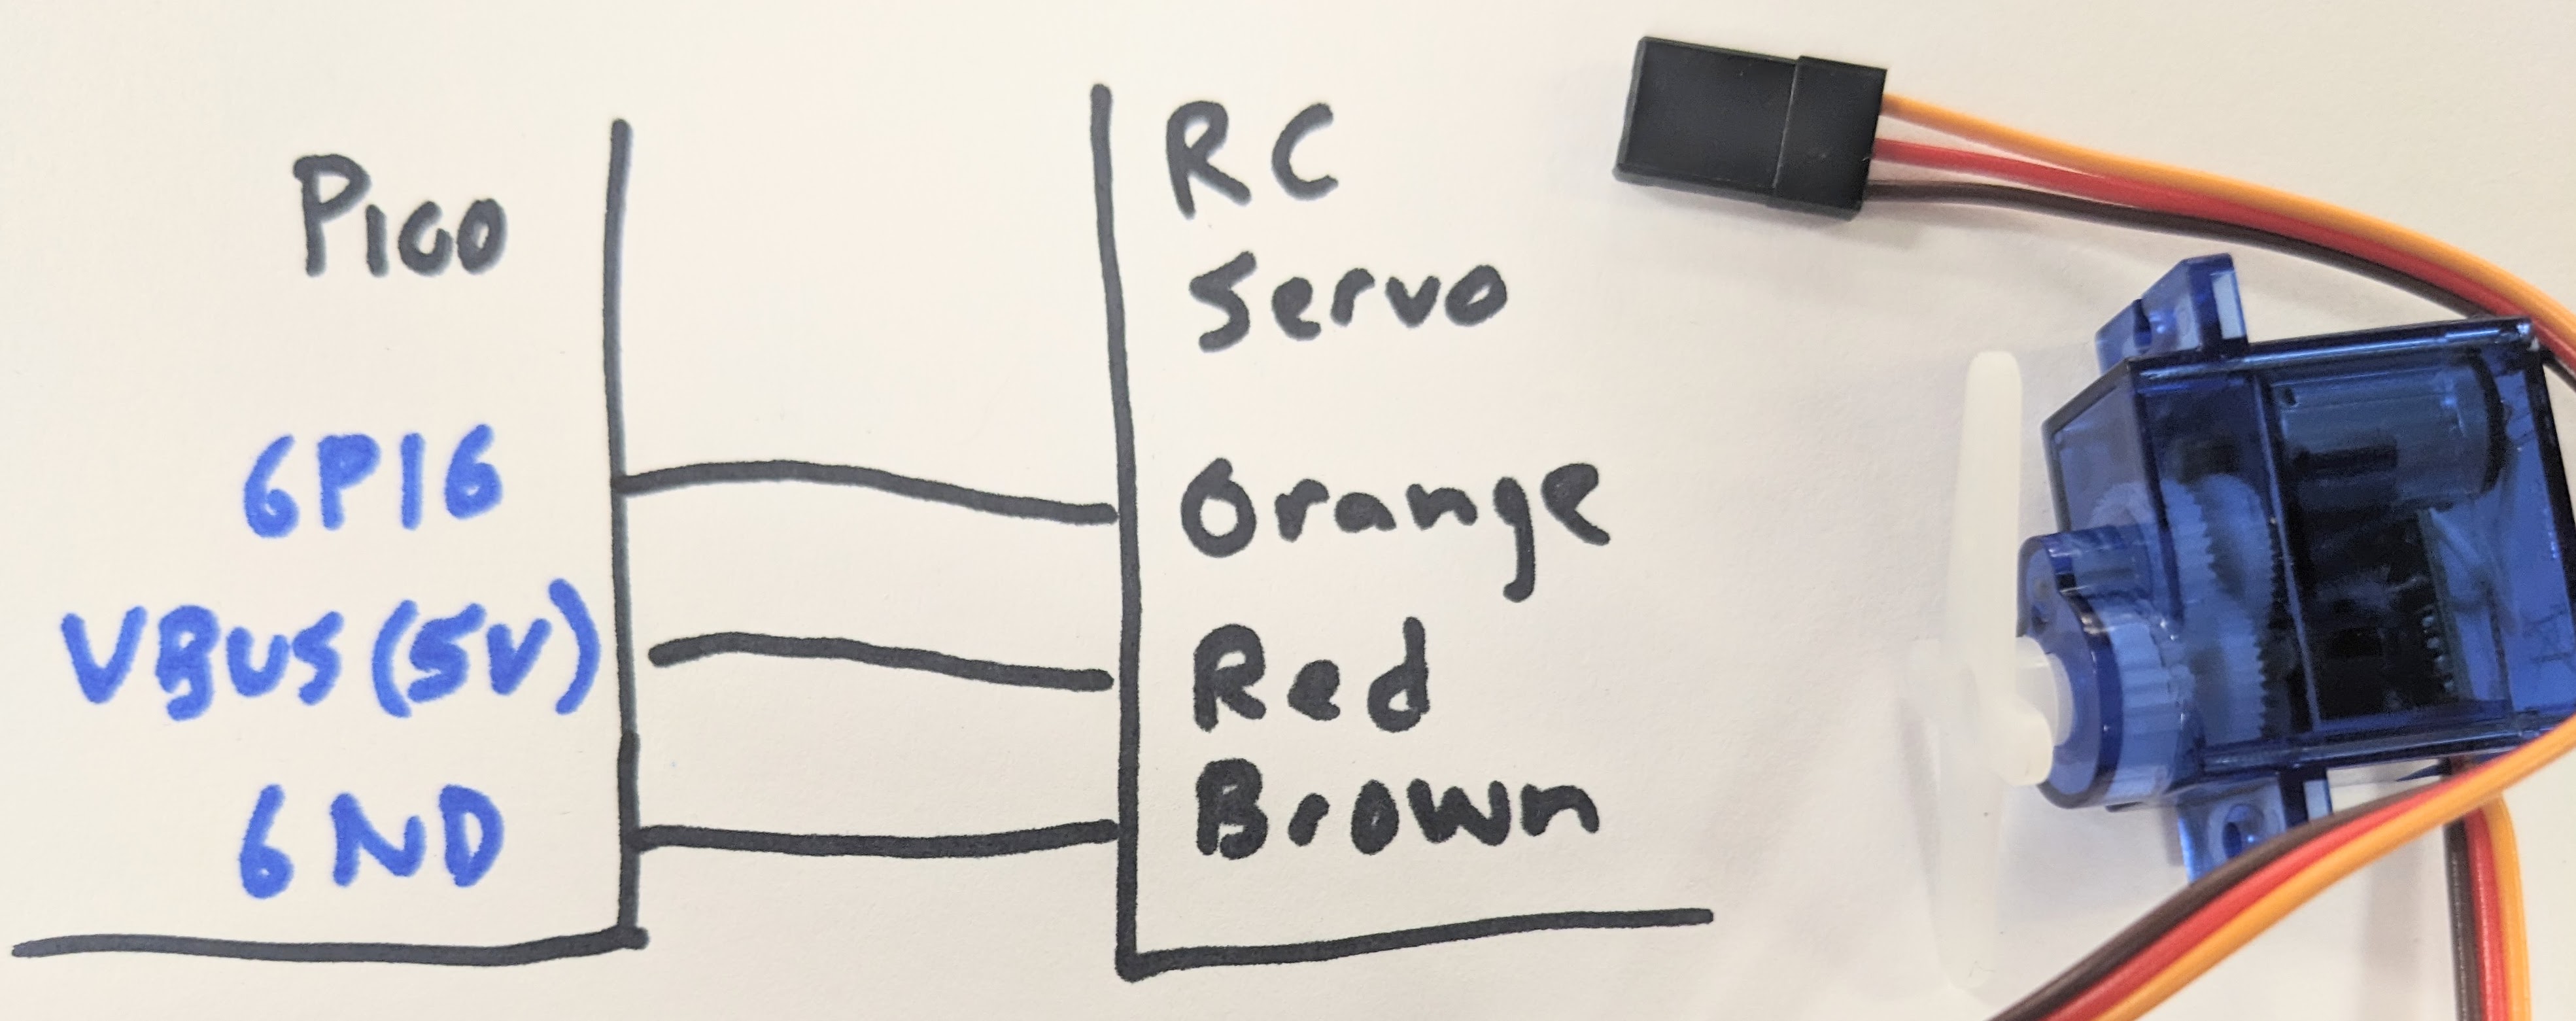 Pico
GP16
VBUS (5V)
GND
RC
Servo
Orange
Red
Brown